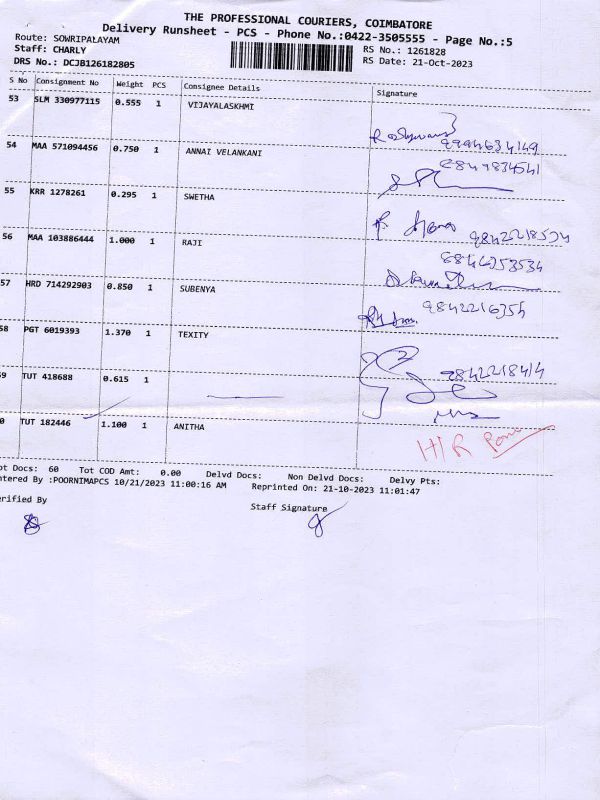 THE PROFESSIONAL COURIERS, COIMBATORE
Delivery Runsheet - PCS - Phone No.:0422-3505555 - Page No.:5
Route: SOWRIPALAYAM RS No.: 1261828
Staff: CHARLY RS Date: 21-Oct-2023
DRS No.: DCJB126182805
S No Consignment No Weight PCS Consignee Details Signature
53 SLM 330977115 0.555 1 VIJAYALASKHMI
9994634149
54 MAA 571094456 0.750 1 ANNAI VELANKANI
8849834541
55 KRR 1278261 0.295 1 SWETHA
9842218534
56 MAA 103886444 1.000 1 RAJI
57 HRD 714292903 0.850 1 SUBENYA
9842216354
58 PGT 6019393 1.370 1 TEXITY
9842218414
9 TUT 418688 0.615 1
0 TUT 182446 1.100 1 ANITHA
H/R
ot Docs: 60 Tot COD Amt: 0.00 Delvd Docs: Non Delvd Docs: Delvy Pts:
ntered By :POORNIMAPCS 10/21/2023 11:00:16 AM Reprinted On: 21-10-2023 11:01:47
erified By Staff Signature